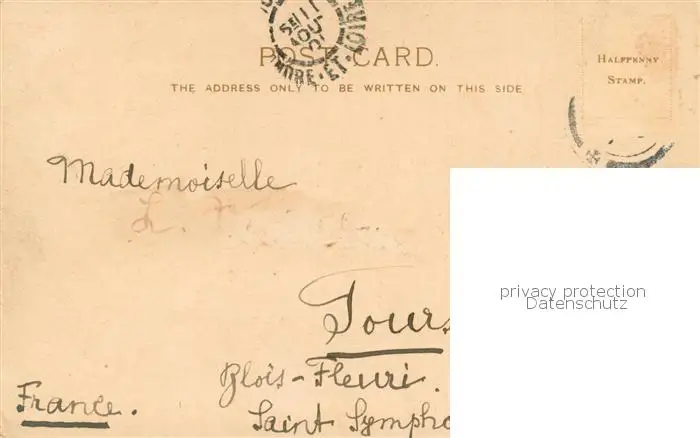 11 AOUT
INDRE-ET-LOIRE
POST CARD.
THE ADDRESS ONLY TO BE WRITTEN ON THIS SIDE
HALFPENNY
STAMP.
Mademoiselle
Tours
Blois-Fleuri.
France.
Saint Sympho
privacy protection
Datenschutz